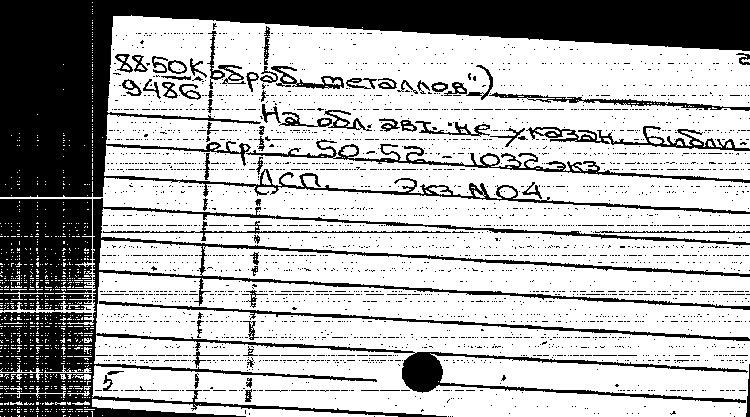 2
88-50К обраб. металлов")
9486
На обл. авт. не указан. Библи-
огр.: с. 50-52. - 1032 экз.
ДСП. Экз. N 04.
5